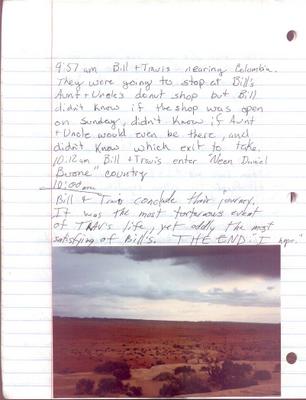 9:57 am Bill + Travis nearing Colombia.
They were going to stop at Bill's
Aunt + Uncle's donut shop but Bill
didn't know if the shop was open
on sunday, didn't know if Aunt
+ Uncle would even be there, and
didn't know which exit to take.
10:12 am Bill + Travis enter "Neon Daniel
Boone" country
10:00 am
Bill & Travis conclude their journey.
It was the most torturous event
of TRAV's life, yet oddly the most
satisfying of Bill's. THE END. I hope."